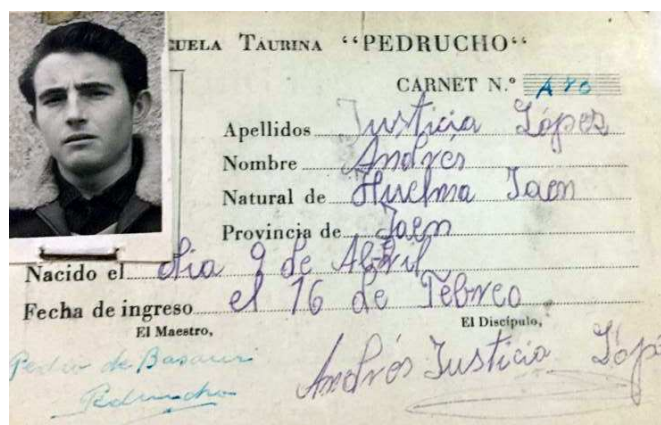 CUELA TAURINA “PEDRUCHO“
CARNET N.º A 80
Apellidos Justicia López
Nombre Andrés
Natural de Huelma Jaen
Provincia de Jaen
Nacido el dia 9 de Abril
Fecha de ingreso el 16 de Febreo
El Maestro,
El Discípulo,
Pedro de Basauri
Pedrucho
Andrés Justicia Lópe